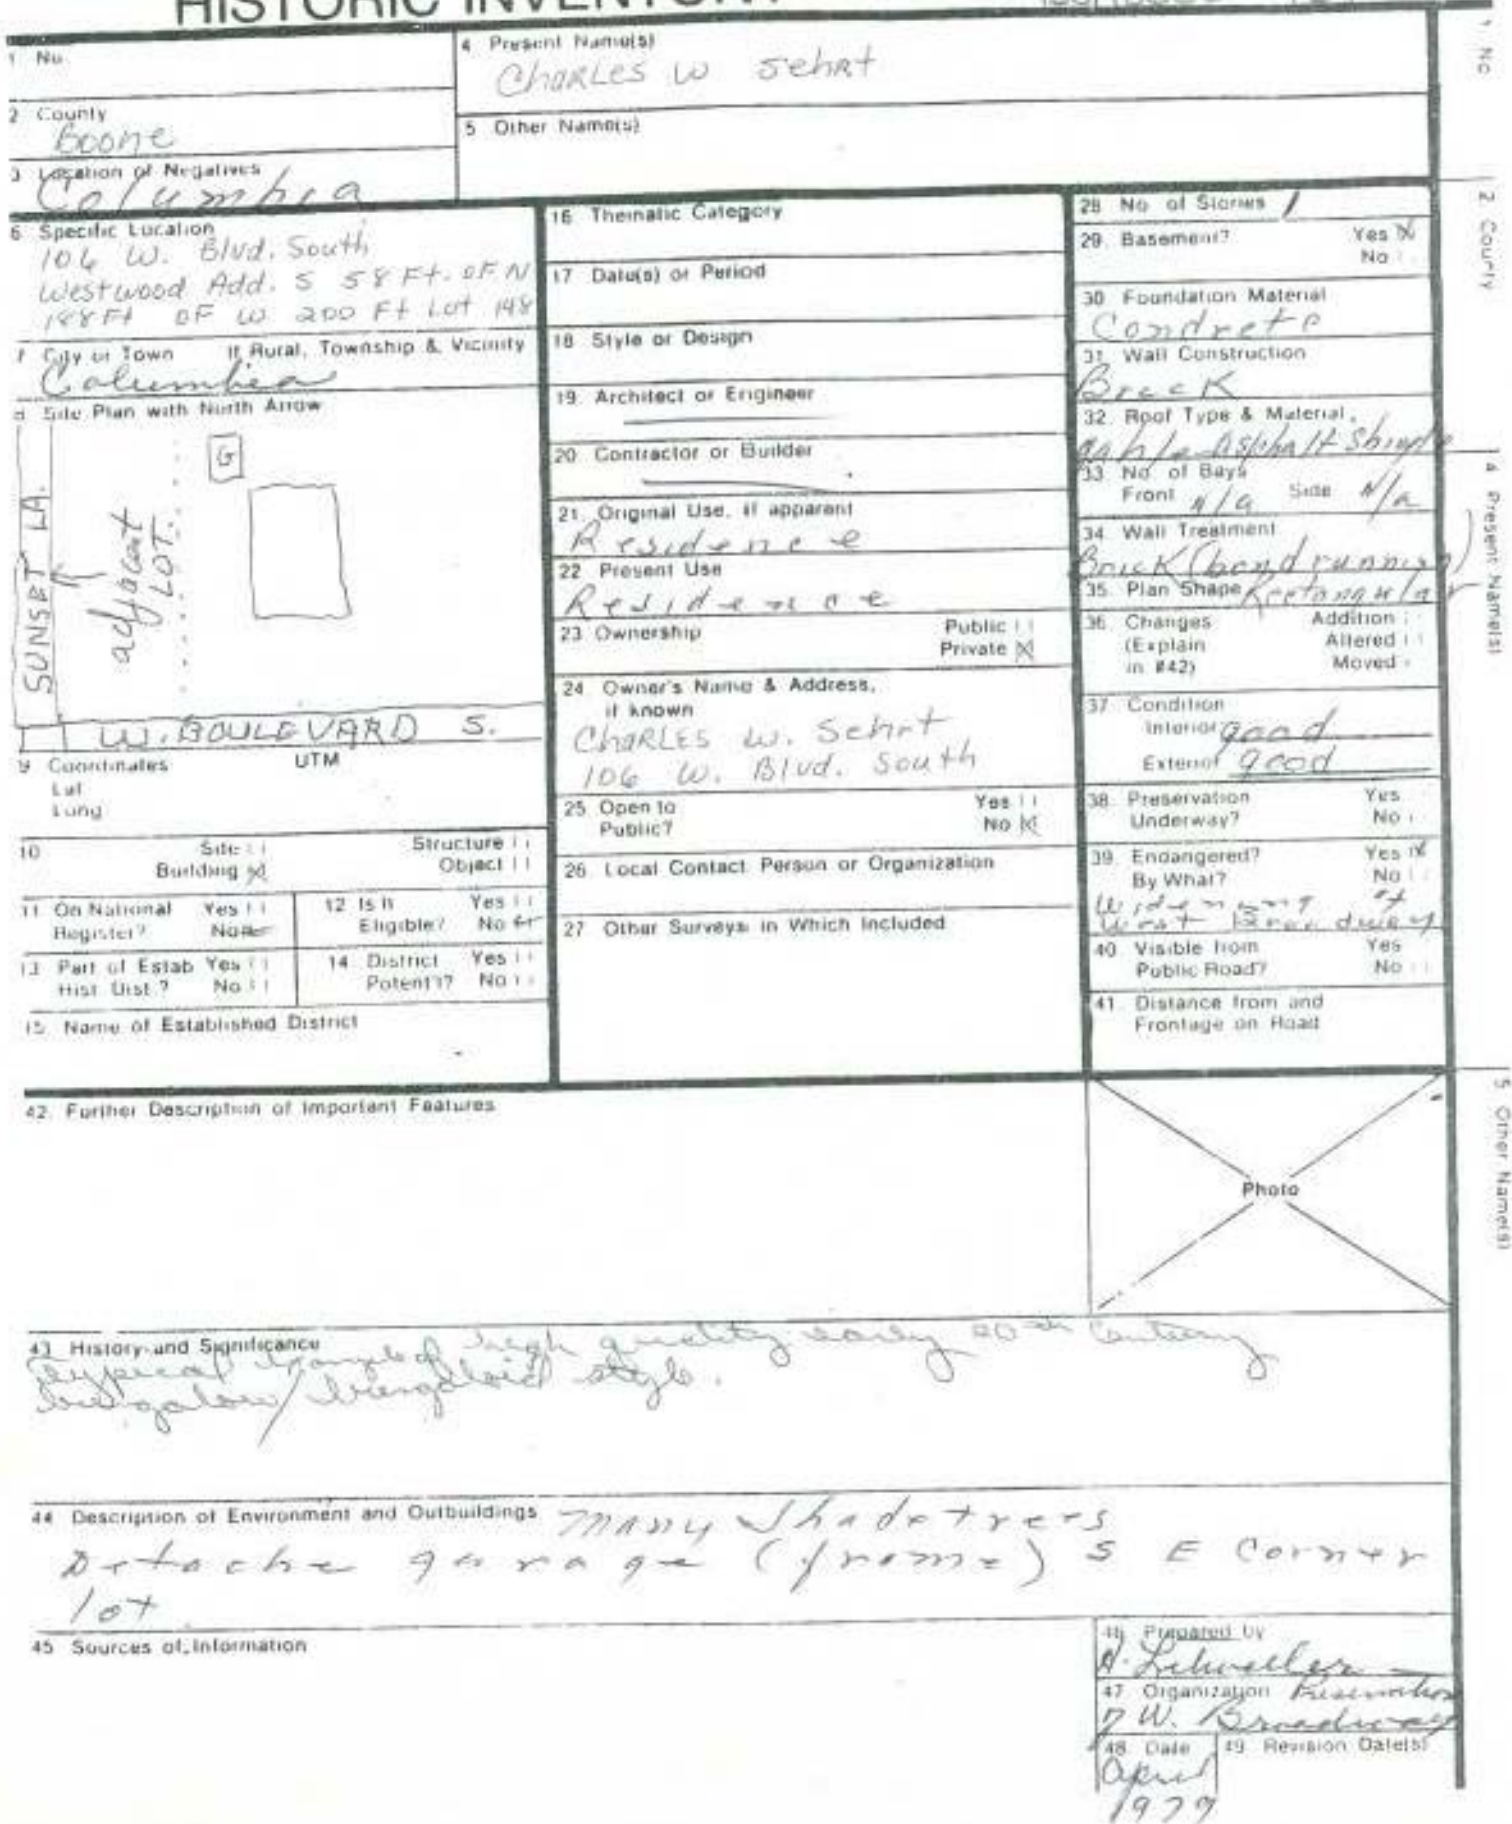 HISTORIC INVENTORY
1 No.
4 Present Name(s)
CHARLES W Sehrt
2 County
Boone
5 Other Name(s)
3 Location of Negatives
Columbia
6 Specific Location
106 W. Blvd. South
Westwood Add. S 58 Ft. OF N
188 Ft OF W 200 Ft Lot 148
7 City or Town If Rural, Township & Vicinity
Columbia
8 Site Plan with North Arrow
G
SUNSET LA.
adjacent
LOT.
W. BOULEVARD S.
9 Coordinates UTM
Lat
Long
10 Site Structure
Building Object
11 On National Yes
Register? No
12 Is it Yes
Eligible? No
13 Part of Estab Yes
Hist Dist.? No
14 District Yes
Potent'l? No
15 Name of Established District
16 Thematic Category
17 Date(s) or Period
18 Style or Design
19 Architect or Engineer
20 Contractor or Builder
21. Original Use, if apparent
Residence
22 Present Use
Residence
23 Ownership Public
Private
24 Owner's Name & Address,
if known
CHARLES W. Sehrt
106 W. Blvd. South
25 Open to Yes
Public? No
26 Local Contact Person or Organization
27 Other Surveys in Which Included
28 No. of Stories 1
29. Basement? Yes
No
30 Foundation Material
Condrete
31. Wall Construction
Brick
32. Roof Type & Material
gable Asphalt Shingle
33 No. of Bays
Front N/a Side N/a
34 Wall Treatment
Brick (bond running)
35. Plan Shape Rectangular
36. Changes Addition
(Explain Altered
in #42) Moved
37 Condition
Interior good
Exterior good
38. Preservation Yes
Underway? No
39. Endangered? Yes
By What? No
Widening of
West Broadway
40. Visible from Yes
Public Road? No
41. Distance from and
Frontage on Road
42. Further Description of Important Features
Photo
43 History and Significance
Typical example of high quality early 20th Century
bungalow/bungaloid style.
44 Description of Environment and Outbuildings many shade trees
Detache garage (frame) S E Corner
lot
45 Sources of Information
46 Prepared by
47 Organization Preservation
W. Broadway
48 Date
April
1979
49 Revision Date(s)
1 No
2 County
4 Present Name(s)
5 Other Name(s)